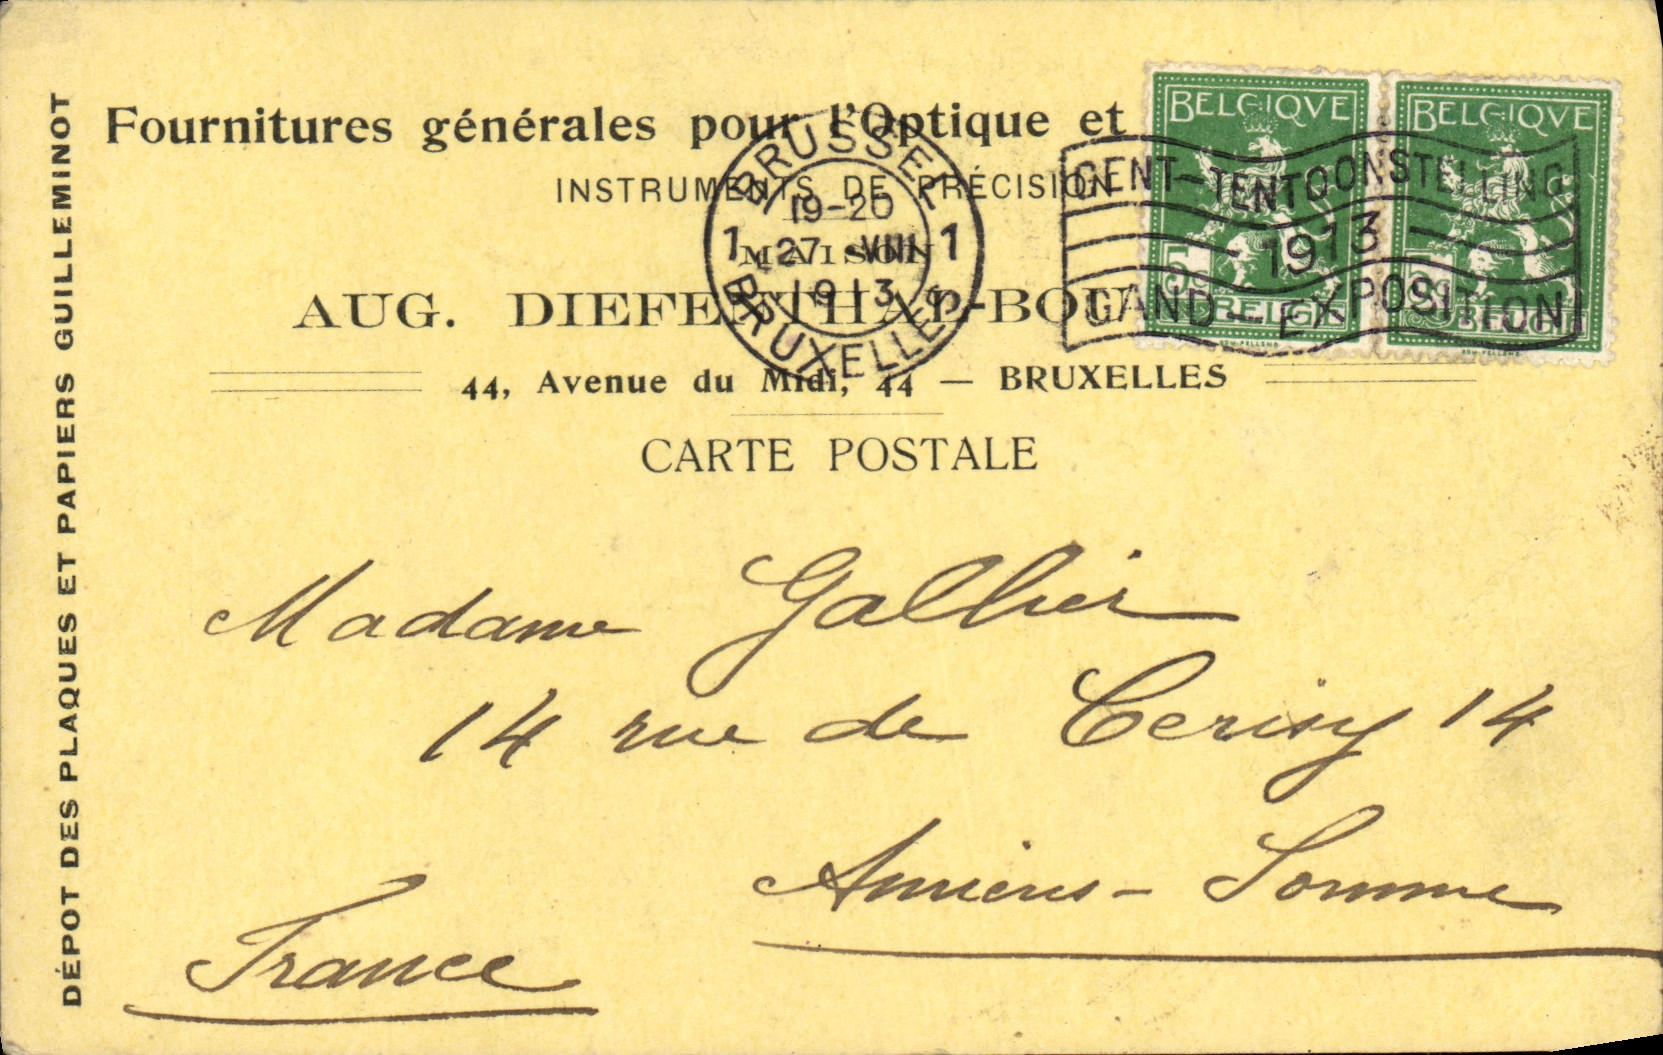 DÉPOT DES PLAQUES ET PAPIERS GUILLEMINOT
Fournitures générales pour l'Optique et
INSTRUMENTS DE PRÉCISION
MAISON
AUG. DIEFENTHAL-BOU
44, Avenue du Midi, 44 — BRUXELLES
CARTE POSTALE
BRUSSEL
1 19-20 1
27 VIII
1913
BRUXELLES
GENT-TENTOONSTELLING
1913
GAND-EXPOSITION
BELGIQVE
5c
BELGIË
BELGIQVE
5c
BELGIË
Madame Gallier
14 rue de Cerisy 14
Amiens - Somme
France